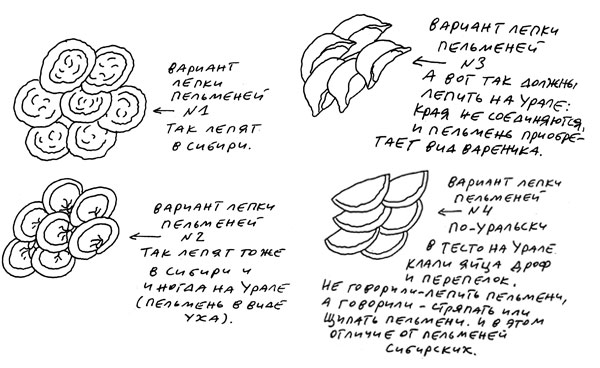 ВАРИАНТ
ЛЕПКИ
ПЕЛЬМЕНЕЙ
№1
ТАК ЛЕПЯТ
В СИБИРИ.
ВАРИАНТ ЛЕПКИ
ПЕЛЬМЕНЕЙ
№2
ТАК ЛЕПЯТ ТОЖЕ
В СИБИРИ И
ИНОГДА НА УРАЛЕ
(ПЕЛЬМЕНЬ В ВИДЕ
УХА).
ВАРИАНТ ЛЕПКИ
ПЕЛЬМЕНЕЙ
№3
А ВОТ ТАК ДОЛЖНЫ
ЛЕПИТЬ НА УРАЛЕ:
КРАЯ НЕ СОЕДИНЯЮТСЯ,
И ПЕЛЬМЕНЬ ПРИОБРЕ-
ТАЕТ ВИД ВАРЕНИКА.
ВАРИАНТ ЛЕПКИ
ПЕЛЬМЕНЕЙ
№4
ПО-УРАЛЬСКИ
В ТЕСТО НА УРАЛЕ
КЛАЛИ ЯЙЦА ДРОФ
И ПЕРЕПЕЛОК.
НЕ ГОВОРИЛИ-ЛЕПИТЬ ПЕЛЬМЕНИ,
А ГОВОРИЛИ - СТРЯПАТЬ ИЛИ
ЩИПАТЬ ПЕЛЬМЕНИ. И В ЭТОМ
ОТЛИЧИЕ ОТ ПЕЛЬМЕНЕЙ
СИБИРСКИХ.